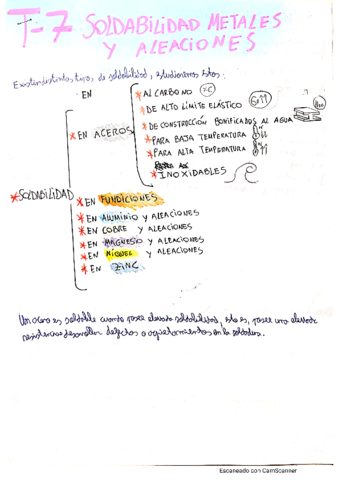 T-7 SOLDABILIDAD METALES
Y ALEACIONES
Existen distintos tipos de soldabilidad, estudiaremos estos:
EN
* EN ACEROS
* AL CARBONO %C
* DE ALTO LÍMITE ELÁSTICO
* DE CONSTRUCCIÓN BONIFICADOS AL AGUA
* PARA BAJA TEMPERATURA
* PARA ALTA TEMPERATURA
* INOXIDABLES
* SOLDABILIDAD
* EN FUNDICIONES
* EN ALUMINIO Y ALEACIONES
* EN COBRE Y ALEACIONES
* EN MAGNESIO Y ALEACIONES
* EN NIQUEL Y ALEACIONES
* EN ZINC
Un acero es soldable cuando posee elevada soldabilidad, esto es, posee una elevada
resistencia a desarrollar defectos o agrietamientos en la soldadura.
Escaneado con CamScanner